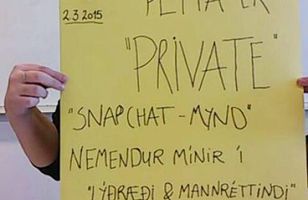 2.3.2015
ÞETTA ER
"PRIVATE"
"SNAPCHAT-MYND"
NEMENDUR MÍNIR Í
"LÝÐRÆÐI & MANNRÉTTINDI"